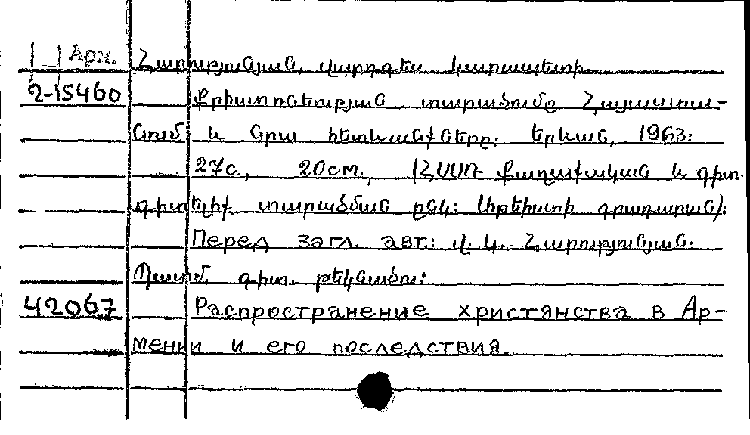 Арм. Հարությունյան, Վարդգես Կարապետի.
2-15460 Քրիստոնեության տարածումը Հայաստա-
նում և նրա հետևանքները: Երևան, 1963:
27с., 20см., (ՀՍՍՌ քաղաքական և գիտ.
գիտելիք. տարածման ընկ: Արեիստի գրադարան):
Перед загл. авт: Վ. Կ. Հարությունյան.
Պատմ. գիտ. թեկնածու:
42067 Распространение христянства в Ар-
мении и его последствия.